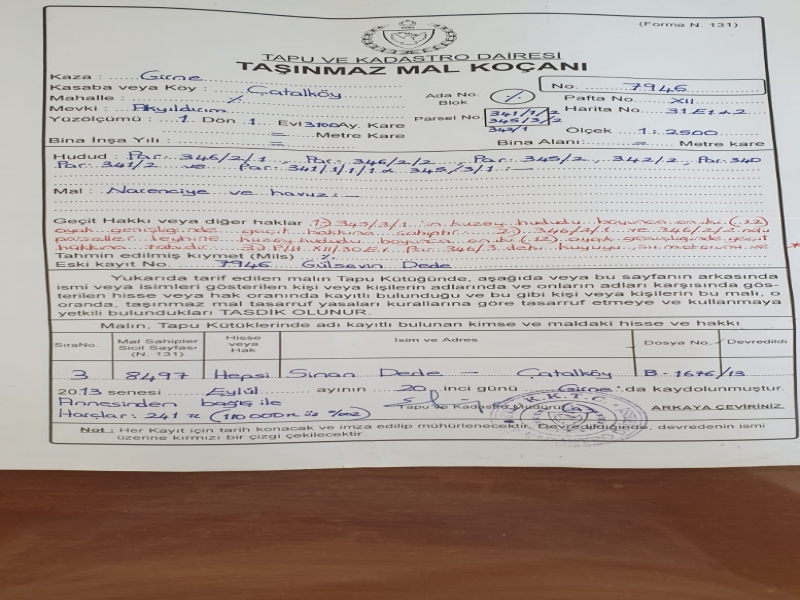 (Forma N. 131)
TAPU VE KADASTRO DAİRESİ
TAŞINMAZ MAL KOÇANI
Kaza : Girne
No. 7946
Kasaba veya Köy : Çatalköy
Ada No. Blok
Pafta No. XII
Mahalle : %
Mevki : Akyıldırım
Parsel No. 341/1/2 345/3/2 343/1
Harita No. 31.E1&2
Yüzölçümü : 1 Dön 1 Evl 3100 Ay. Kare
Ölçek 1:2500
Bina İnşa Yılı : = Metre Kare
Bina Alanı: = Metre kare
Hudud : Par. 346/2/1, Par. 346/2/2, Par. 345/2, 342/2, Par. 340
Par. 341/2 ve Par. 341/1/1/1 & 345/3/1:—
Mal : Narenciye ve havuz:—
Geçit Hakkı veya diğer haklar 1) 343/3/1 in kuzey hududu boyunca on iki (12)
ayak genişliğinde geçit hakkına sahiptir. 2) 346/2/1 ve 346/2/2 nolu
parseller leyhine kuzey hududu boyunca on iki (12) ayak genişliğinde geçit
hakkına tabidir. 3) P/H. XII/30.E1. Par. 346/3 deki kuyuyu su motorunu ve *
Tahmin edilmiş kıymet (Mils) %
Eski kayıt No. 7946 Gülsevin Dede
Yukarıda tarif edilen malın Tapu Kütüğünde, aşağıda veya bu sayfanın arkasında
ismi veya isimleri gösterilen kişi veya kişilerin adlarında ve onların adları karşısında gös-
terilen hisse veya hak oranında kayıtlı bulunduğu ve bu gibi kişi veya kişilerin bu malı, o
oranda, taşınmaz mal tasarruf yasaları kurallarına göre tasarruf etmeye ve kullanmaya
yetkili bulundukları TASDİK OLUNUR.
Malın, Tapu Kütüklerinde adı kayıtlı bulunan kimse ve maldaki hisse ve hakkı
Sıra No. Mal Sahipler Sicil Sayfası (N. 131) Hisse veya Hak İsim ve Adres Dosya No. Devredildi
3 8497 Hepsi Sinan Dede – Çatalköy B-1676/13
2013 senesi Eylül ayının 20 inci günü Girne'da kaydolunmuştur.
Annesinden bağış ile
Tapu ve Kadastro Müdürü
ARKAYA ÇEVİRİNİZ
Harçlar: 241
K.K.T.C.
Not : Her Kayıt için tarih konacak ve imza edilip mühürlenecektir. Devredildiğinde, devredenin ismi
üzerine kırmızı bir çizgi çekilecektir.